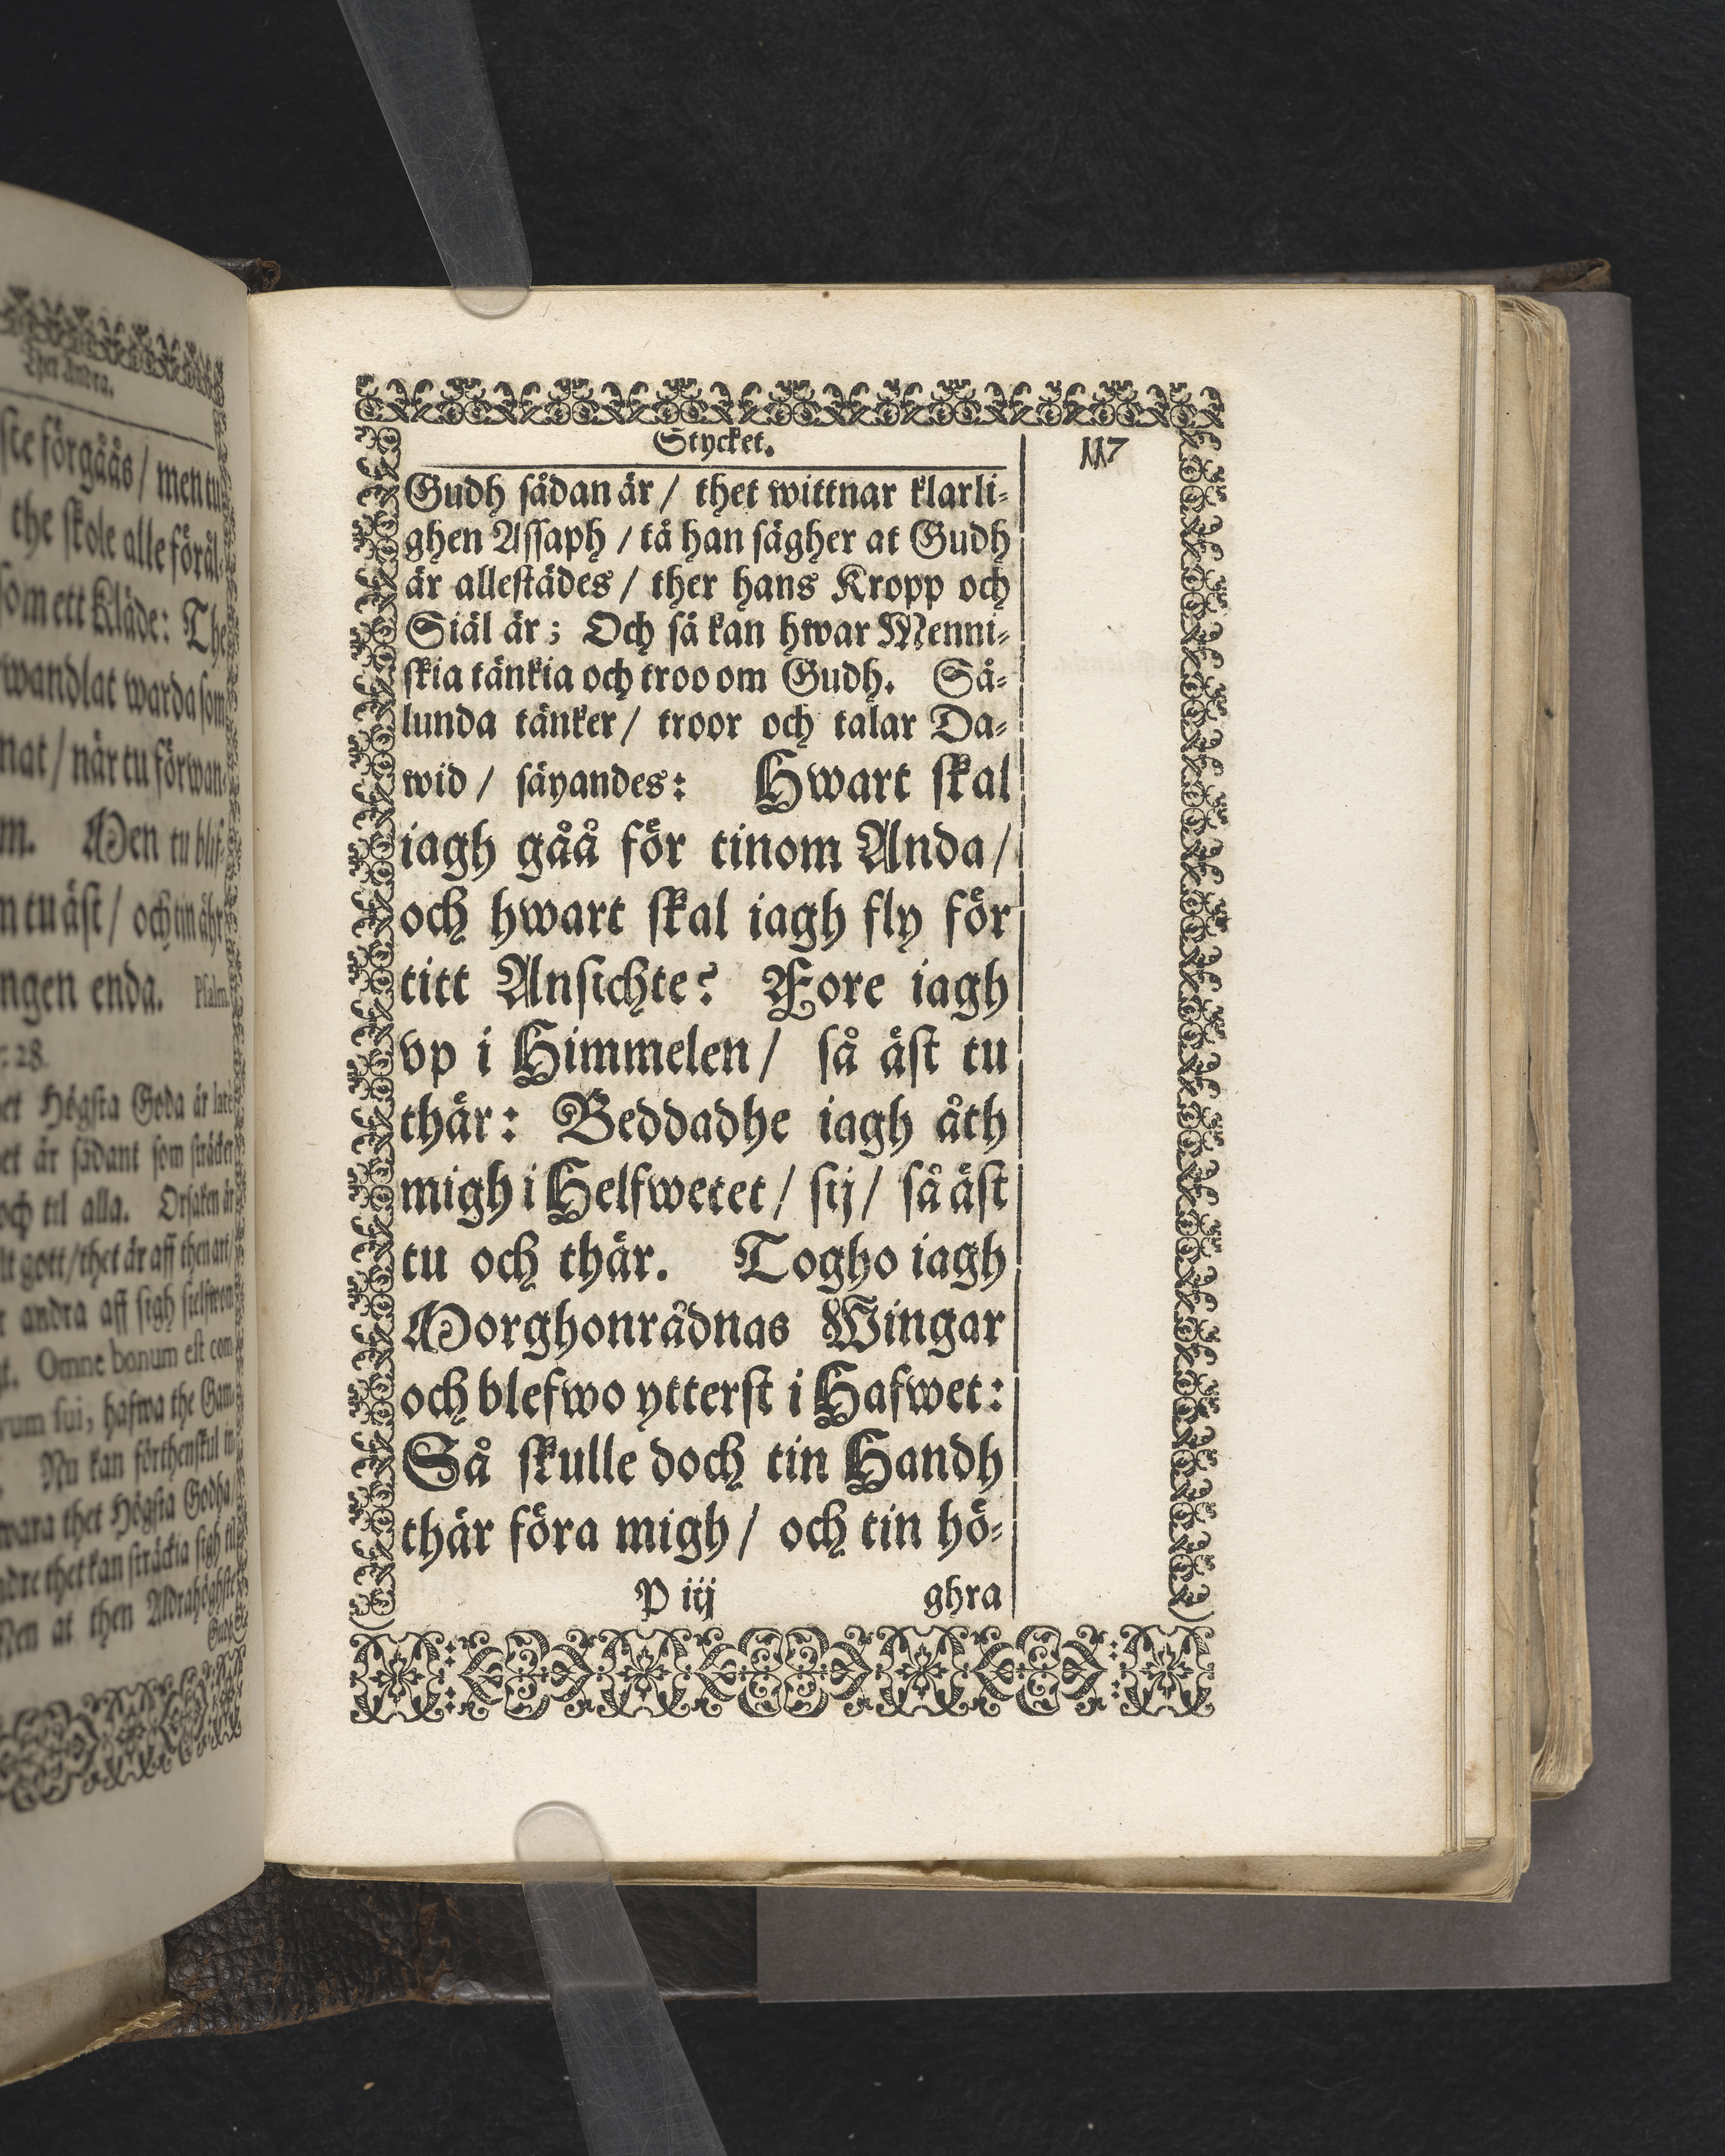 Thet Andra.
ste förgåås / men tu
the skole alle föräl-
som ett Kläde: The
wandlat warda som
nat / när tu förwan-
m. Men tu blif-
n tu äst / och tin åhr
ngen enda. Psalm.
: 28.
et Högsta Goda är
et är sådant som sträcker
och til alla. Orsaken är
lt gott / thet är aff then art /
r andra aff sigh sielfwom
t. Omne bonum est com-
vum sui, hafwa the Gam-
. Nu kan förthenskul in-
wara thet Högsta Godha /
dre thet kan sträckia sigh til
Men at then Aldrahöghste
Gudh
Stycket. 117
Gudh sådan är / thet wittnar klarli-
ghen Assaph / tå han sägher at Gudh
är allestädes / ther hans Kropp och
Siäl är; Och så kan hwar Menni-
skia tänkia och troo om Gudh. Så-
lunda tänker / troor och talar Da-
wid / säyandes: Hwart skal
iagh gåå för tinom Anda /
och hwart skal iagh fly för
titt Ansichte? Fore iagh
vp i Himmelen / så äst tu
thär: Beddadhe iagh åth
migh i Helfwetet / sij / så äst
tu och thär. Togho iagh
Morghonrådnas Wingar
och blefwo ytterst i Hafwet:
Så skulle doch tin Handh
thär föra migh / och tin hö-
P iij ghra